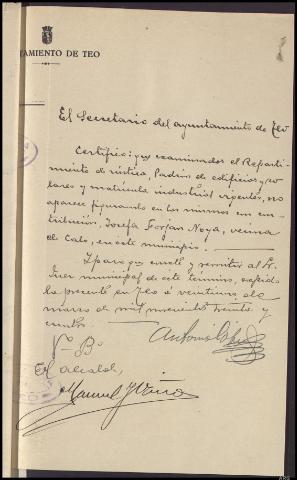 TAMIENTO DE TEO
El Secretario del ayuntamiento de Teo
Certifico: que examinados el Reparti-
miento de rústica, Padrón de edificios y so-
lares y matrícula industrial vigentes, no
aparece figurando en los mismos con con-
tribución, Josefa Forjan Noya, vecina
de Calo, en este municipio.
Y para que conste y remitir al Sr.
Juez municipal de este término, expido
la presente en Teo á veintiuno de
marzo de mil novecientos treinta y
cuatro.
Antonio
Vº Bº
El alcalde,
Manuel